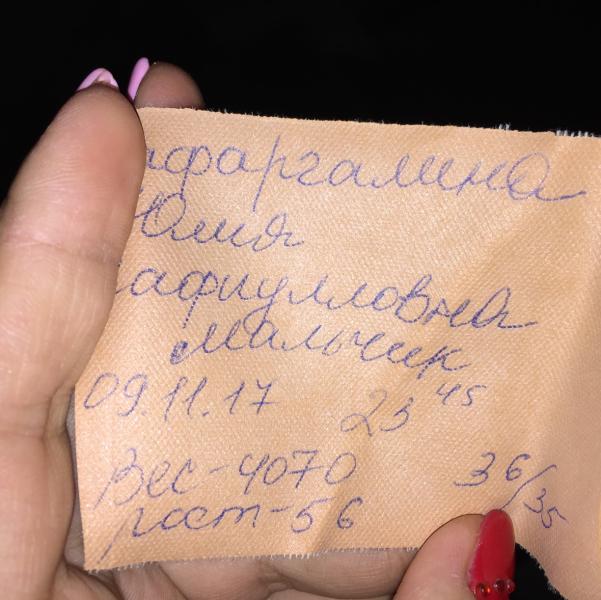 афаргалина
Юлия
афиулловна
мальчик
09.11.17 23 45
Вес-4070 36/35
рост-56